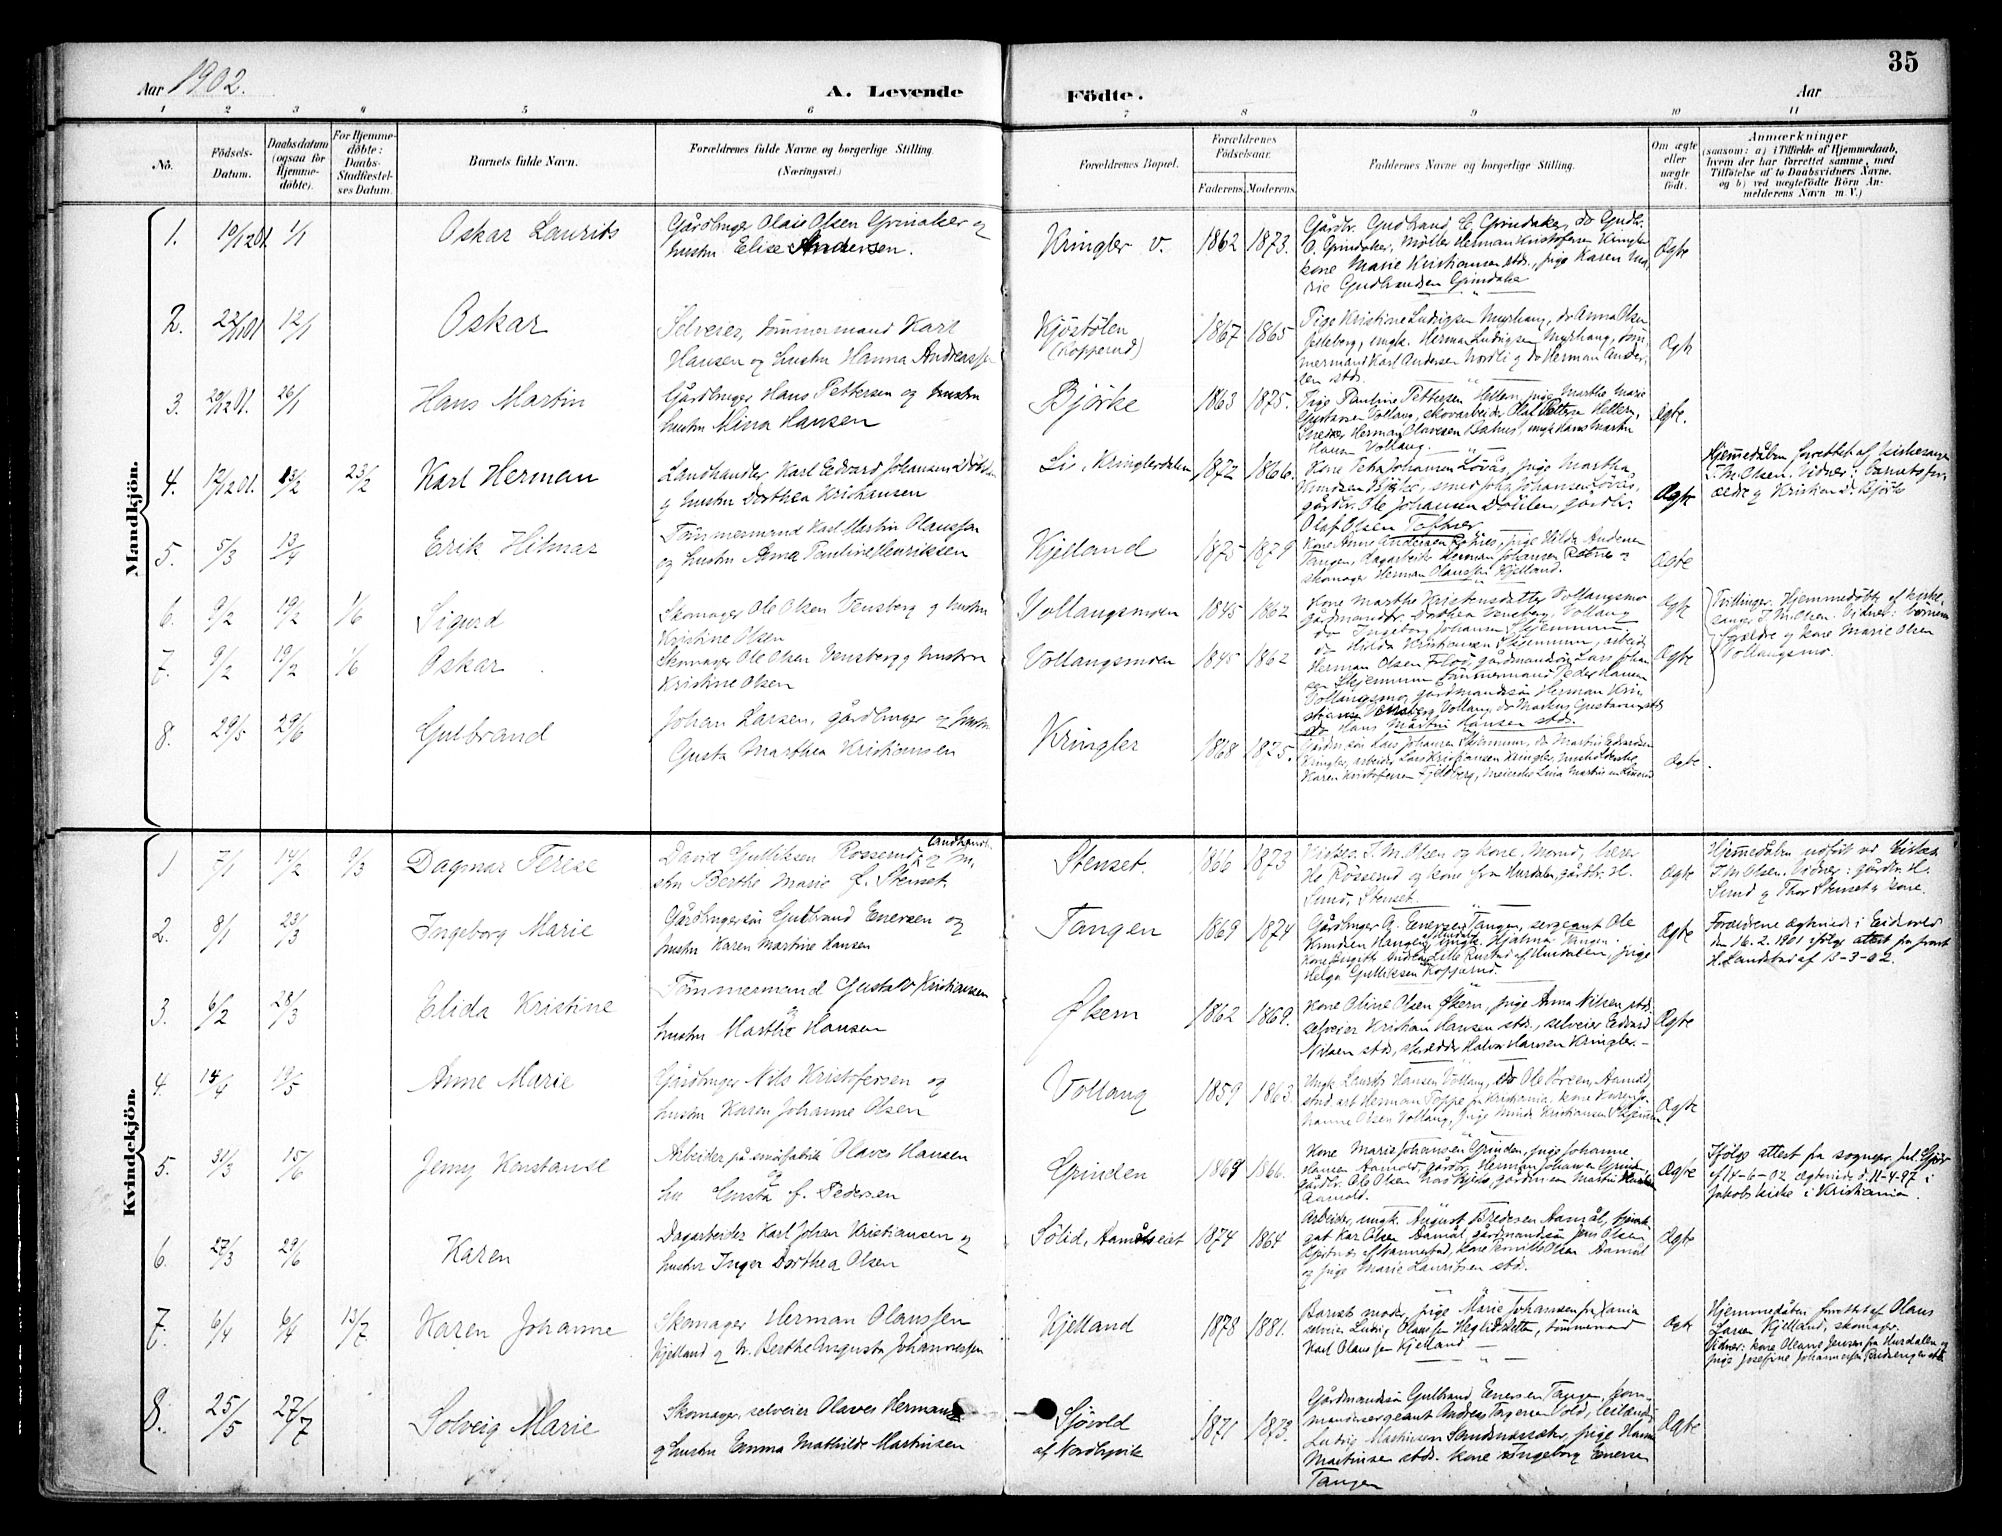 35
Aar 1902.
A. Levende
Födte.
Aar
1 2 3 4 5 6 7 8 9 10 11
No.
Födsels-Datum.
Daabsdatum (ogsaa for Hjemme-döbte).
For Hjemme-döbte: Daabs-Stadfæstel-ses Datum.
Barnets fulde Navn.
Forældrenes fulde Navne og borgerlige Stilling.
(Næringsvei.)
Forældrenes Bopæl.
Forældrenes Födselsaar.
Faderens. Moderens.
Faddernes Navne og borgerlige Stilling.
Om ægte eller uægte födt.
Anmærkninger
(saasom: a) i Tilfælde af Hjemmedaab, hvem der har forrettet samme, med Tilföielse af to Daabsvidners Navne, og b) ved uægtefödte Börn An-melderens Navn m. V.)
Mandkjön.
1. 10/12 01. 1/1 Oskar Laurits
Gårdbruger Olaf Olsen Grindaker og
hustru Elise Andersen.
Kringler v. 1862 1873.
Gårdbr. Gudbrand E. Grindaker, do Gudbr.
O. Grindaker, Møller Herman Kristofersen Kringler
kone Marie Kristiansen stds., pige Karen Ma-
rie Gudbrandsen Grindaker
Ægte
2. 22/11 01. 12/1 Oskar
Selveier, tømmermand Karl
Hansen og hustru Hanna Andreassen
Kjøstølen
(Kopperud)
1867 1865
Pige Kristine Ludvigsen Myrhaug, do Anna Olsen
ungk. Herman Ludvigsen Myrhaug, tøm-
mermand Karl Andersen Nordli og do Herman Ander-
sen stds.
Ægte
3. 20/12 01. 26/1 Hans Martin
Gårdbruger Hans Pettersen og hustru
hustru Mina Hansen
Bjørke 1863 1875.
Pige Pauline Pettersen Hellern, pige Marthe Marie
Gustavsen Vollaug, skovarbeider Olaf Pettersen Hellern,
Snedker Herman Olavesen ungk Hans Martin
Hansen Vollaug.
Ægte.
4. 12/12 01. 23/2 23/2 Karl Herman
Landhandler Karl Edvard Johansen
og hustru Dorthea Kristiansen
Li, Kringlerdalen 1872 1866.
Kone Petra Johansen Løvås, Pige Martha
Knudsen Bjørke, smed Johan Johansen Løvås,
gårdbr. Ole Johansen Døhlen, gårdbr.
Olaf Olsen Toftner
Ægte
Hjemmedåben forrettet af kirkesanger
J. M. Olsen. Vidner: barnets for-
ældre og Kristian D. Bjørke
5. 5/3 13/4 Erik Hilmar
Tømmermand Karl Martin Olaussen
og hustru Anna Pauline Henriksen
Kjelland 1875 1879
Kone Anne Andersen pige Hilda Andersen
Tangen, Dagarbeider Herman Johansen og
skomager Herman Olaussen Kjelland.
Ægte
6. 9/2 19/2 1/6 Sigurd
Skomager Ole Olsen Vensberg og hustru
Kristine Olsen
Vollaugsmoen 1845 1862
Kone Marthe Kristensdatter Vollaugsmo
gårdmandsdr. Dorthea Vensberg, Vollaug
do Ingeborg Johansen Skjennum,
do Hilda Kristiansen Skjennum, arbeider
Ægte
Tvillinger. Hjemmedøbte af kirke-
sanger J. M. Olsen. Vidner: børnenes
forældre og kone Marie Olsen
Vollaugsmo.
7. 9/2 19/2 1/6 Oskar
Skomager Ole Olsen Vensberg og hustru
Kristine Olsen
Vollaugsmoen 1845 1862
Herman Olsen gårdmandssøn Lars Johan-
sen Skjennum tømmermand Peder Hansen
Vollaugsmo, gårdmandssøn Herman Kris-
tensen Vensberg, Vollaug, do Markus Gustavsen stds
do Hans Martin Hansen stds.
Ægte
8. 29/5 29/6 Gulbrand
Johan Larsen, gårdbruger og hustru
Gusta Marthea Kristiansen
Kringler 1868 1875.
Gårdbr. søn Lars Johansen Skjennum, do Martin Edvardsen
Kringler, arbeider Lars Kristiansen Kringler, husholderske
Karen Kristofersen Fjeldberg, meierske Lina Martinsen
Ægte
Kvindekjön.
1 7/1 14/2 9/3 Dagmar Terese
David Gulliksen Rosserud, landhandl. og hu-
stru Berthe Marie f. Stenset.
Stenset. 1866 1873
Kirkes. J. M. Olsen og kone, Morud, lærer
He Rosserud og kone fra Hurdalen, gårdbr. H.
Sund, Stenset.
Ægte
Hjemmedåben udført ved kirkes.
J. M. Olsen. Vidner: gårdbr. H.
Sund og Thor Stenset og kone.
2. 8/1 23/3 Ingeborg Marie
Gårdbrugersøn Gudbrand Enersen og
hustru Karen Martine Hansen
Tangen 1869 1874
Gårdbruger G. Enersen Tangen, sergeant Ole
Knudsen Haugen, ungk. Hjalmar Tangen.
Kone Birgitte Lille Rustad af Hurdalen, pige
Helga Gulliksen Kopperud.
Ægte
Forældrene ægteviede i Eidsvold
den 16. 2. 1901 ifølge attest fra provst
H. Landstad af 13-3-02.
3. 6/2 28/3 Elida Kristine
Tømmermand Gustav Kristiansen
og
hustru Marthe Hansen
Økern 1862 1869.
Kone Oline Olsen Økern, pige Anna Nilsen stds.
selveier Kristian Hansen stds., selveier Edvard
Nilsen stds., skrædder Halvor Hansen Kringler.
Ægte
4. 14/4 19/5 Anne Marie
Gårdbruger Nils Kristofersen og
hustru Karen Johanne Olsen
Vollaug 1859 1863.
Ungk Laurits Hansen Vollaug, do Ole Aamold,
stud. art Herman Toppe fra Kristiania, kone Karen Jo-
hanne Olsen Vollaug, pige Kristiansen Skjennum.
Ægte
5. 31/3 15/6 Jenny Konstanse
Arbeider på smørfabrik Olaves Hansen
og
hu Gusta f. Pedersen
Grinden 1869 1866.
Kone Marie Johansen Grinden, pige Johanne
Hansen Aamold, gårdbr. Herman Johansen Grinden,
gårdbr. Ole Olsen gårdbr. søn Martin Hansen
Aamold.
Ægte
Ifølge attest fra sognepr.
af 14-6-02 ægteviede d. 11-4-97 i
Jakobs kirke i Kristiania.
6. 27/3 29/6 Karen
Dagarbeider Karl Johan Kristiansen og
hustru Inger Dorthea Olsen
Sølid, Aamåls eiet 1874 1864
Arbeider, ungk. August Bredesen Aamål,
Karl Olsen Aamål, gårdmandssøn Jens Olsen
kone Pernille Olsen Aamål
og pige Marie Lauritsen stds.
Ægte
7. 6/4 6/4 13/7 Karen Johanne
Skomager Herman Olaussen
Kjelland og h. Berthe Augusta Johannessen
Kjelland 1878 1881.
Barnets moder, pige Marie Johansen fra Xania
selveier Ludvig Olaussen Heglidsletten, tømmermand
Karl Olaussen Kjelland
Ægte
Hjemmedåben forrettet af Olaus
Larsen Kjelland, skomager.
Vidner: kone Oleane Jensen fra Hurdalen og
pige Josefine Johannessen
8. 25/5 27/7 Solveig Marie
Skomager, selveier Olaves Hermans
og hustru Emma Mathilde Martinsen
Sjøvold
af Nordbyvik
1871 1873.
Gårdmandssøn Gulbrand Enersen Tangen, kom-
mandersergeant Andreas Vold,
Ludvig Martinsen Sandsnæsæter, pige Hanna
Martinsen stds. kone Ingeborg Enersen
Tangen
Ægte